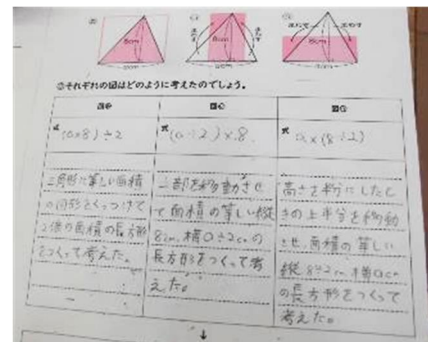 8cm
8cm
8cm
②それぞれの図はどのように考えたのでしょう。
式 (a×8)÷2
式 (a÷2)×8
式 a×(8÷2)
三角形に等しい面積
の図形をくっつけて
2倍の面積の長方形
をつくって考えた。
一部を移動させ
て面積の等しい縦
8cm,横a÷2cmの
長方形をつくって考
えた。
高さを半分にしたと
きの上半分を移動
させ面積の等しい
縦8÷2cm横acm
の長方形をつくって
考えた。